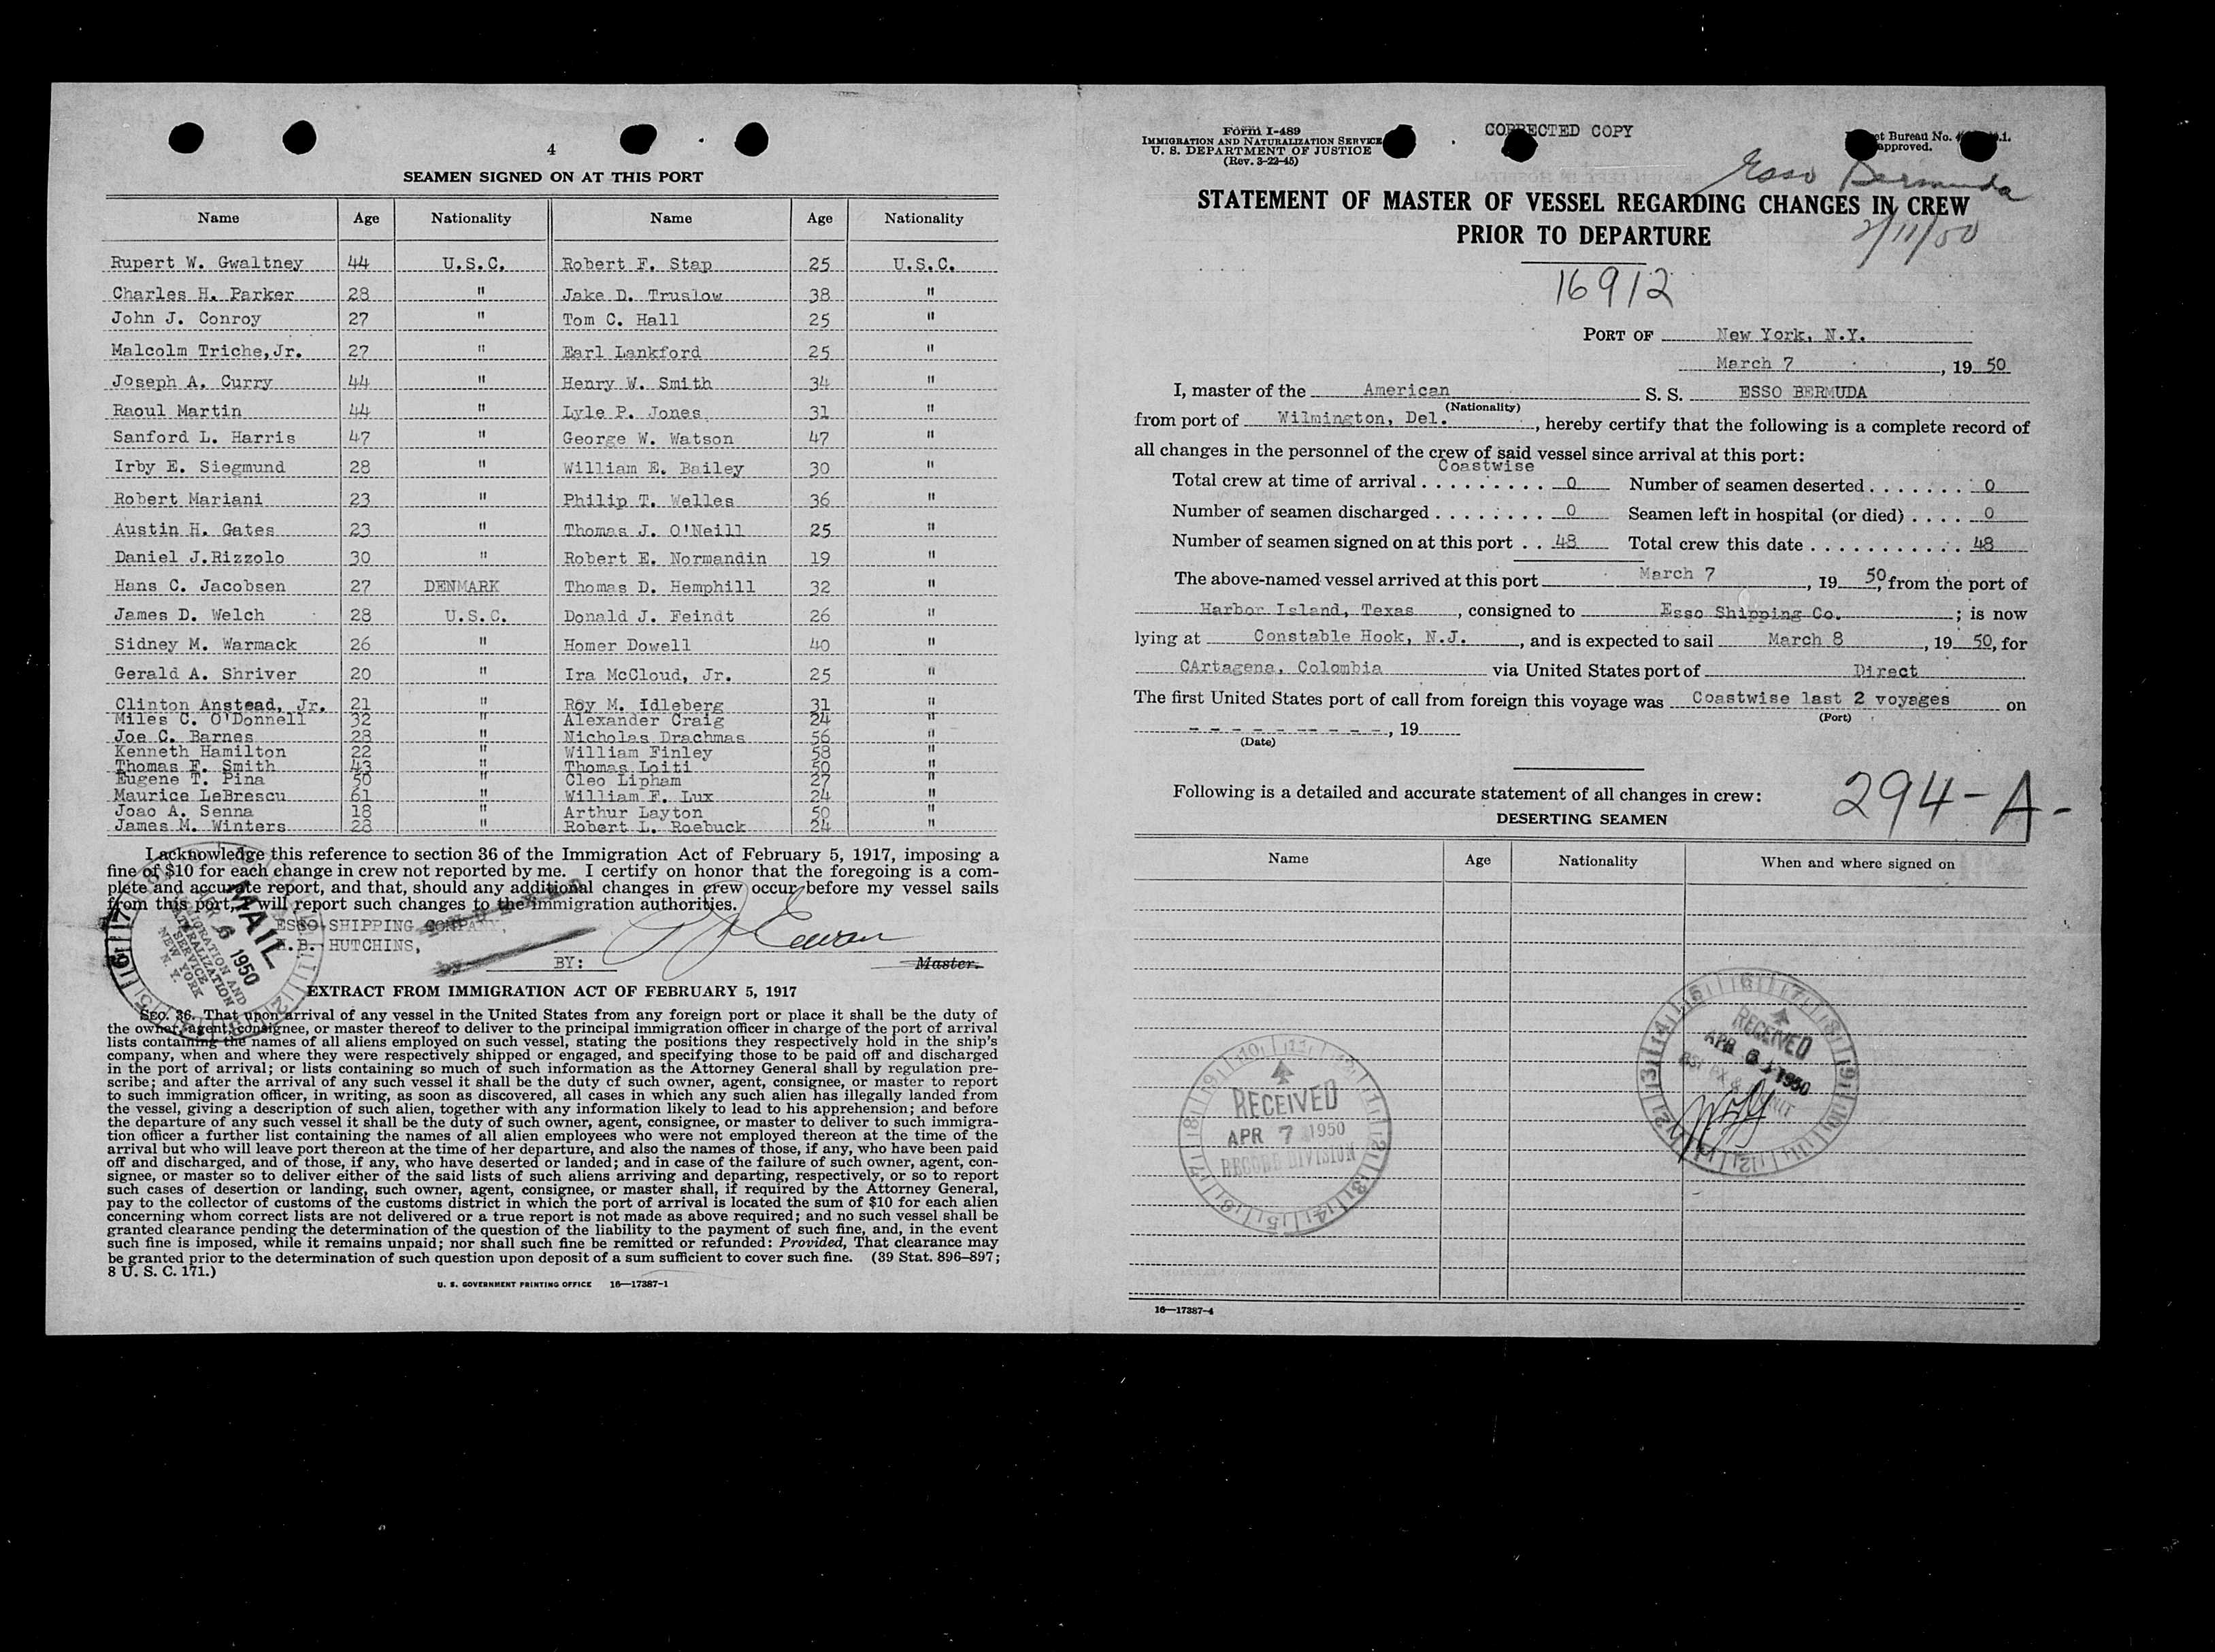 4
SEAMEN SIGNED ON AT THIS PORT
Name Age Nationality Name Age Nationality
Rupert W. Gwaltney 44 U.S.C. Robert F. Stap 25 U.S.C.
Charles H. Parker 28 " Jake D. Truslow 38 "
John J. Conroy 27 " Tom C. Hall 25 "
Malcolm Triche,Jr. 27 " Earl Lankford 25 "
Joseph A. Curry 44 " Henry W. Smith 34 "
Raoul Martin 44 " Lyle P. Jones 31 "
Sanford L. Harris 47 " George W. Watson 47 "
Irby E. Siegmund 28 " William E. Bailey 30 "
Robert Mariani 23 " Philip T. Welles 36 "
Austin H. Gates 23 " Thomas J. O'Neill 25 "
Daniel J.Rizzolo 30 " Robert E. Normandin 19 "
Hans C. Jacobsen 27 DENMARK Thomas D. Hemphill 32 "
James D. Welch 28 U.S.C. Donald J. Feindt 26 "
Sidney M. Warmack 26 " Homer Dowell 40 "
Gerald A. Shriver 20 " Ira McCloud, Jr. 25 "
Clinton Anstead, Jr. 21 " Roy M. Idleberg 31 "
Miles C. O'Donnell 32 " Alexander Craig 24 "
Joe C. Barnes 28 " Nicholas Drachmas 56 "
Kenneth Hamilton 22 " William Finley 58 "
Thomas F. Smith 43 " Thomas Loiti 50 "
Eugene T. Pina 50 " Cleo Lipham 27 "
Maurice LeBrescu 61 " William F. Lux 24 "
Joao A. Senna 18 " Arthur Layton 50 "
James M. Winters 28 " Robert L. Roebuck 24 "
I acknowledge this reference to section 36 of the Immigration Act of February 5, 1917, imposing a
fine of $10 for each change in crew not reported by me. I certify on honor that the foregoing is a com-
plete and accurate report, and that, should any additional changes in crew occur before my vessel sails
from this port, I will report such changes to the immigration authorities.
ESSO SHIPPING COMPANY,
B. HUTCHINS,
by
BY: Master.
MAIL
APR 6 1950
IMMIGRATION AND
NATURALIZATION
SERVICE
NEW YORK
N. Y.
EXTRACT FROM IMMIGRATION ACT OF FEBRUARY 5, 1917
SEC. 36. That upon arrival of any vessel in the United States from any foreign port or place it shall be the duty of
the owner, agent, consignee, or master thereof to deliver to the principal immigration officer in charge of the port of arrival
lists containing the names of all aliens employed on such vessel, stating the positions they respectively hold in the ship's
company, when and where they were respectively shipped or engaged, and specifying those to be paid off and discharged
in the port of arrival; or lists containing so much of such information as the Attorney General shall by regulation pre-
scribe; and after the arrival of any such vessel it shall be the duty of such owner, agent, consignee, or master to report
to such immigration officer, in writing, as soon as discovered, all cases in which any such alien has illegally landed from
the vessel, giving a description of such alien, together with any information likely to lead to his apprehension; and before
the departure of any such vessel it shall be the duty of such owner, agent, consignee, or master to deliver to such immigra-
tion officer a further list containing the names of all alien employees who were not employed thereon at the time of the
arrival but who will leave port thereon at the time of her departure, and also the names of those, if any, who have been paid
off and discharged, and of those, if any, who have deserted or landed; and in case of the failure of such owner, agent, con-
signee, or master so to deliver either of the said lists of such aliens arriving and departing, respectively, or so to report
such cases of desertion or landing, such owner, agent, consignee, or master shall, if required by the Attorney General,
pay to the collector of customs of the customs district in which the port of arrival is located the sum of $10 for each alien
concerning whom correct lists are not delivered or a true report is not made as above required; and no such vessel shall be
granted clearance pending the determination of the question of the liability to the payment of such fine, and, in the event
such fine is imposed, while it remains unpaid; nor shall such fine be remitted or refunded: Provided, That clearance may
be granted prior to the determination of such question upon deposit of a sum sufficient to cover such fine. (39 Stat. 896–897;
8 U. S. C. 171.)
U. S. GOVERNMENT PRINTING OFFICE 16—17387-1
Form I-489
IMMIGRATION AND NATURALIZATION SERVICE
U. S. DEPARTMENT OF JUSTICE
(Rev. 3-22-45)
CORRECTED COPY
Bureau No.
approved.
Esso Bermuda
2/11/50
STATEMENT OF MASTER OF VESSEL REGARDING CHANGES IN CREW
PRIOR TO DEPARTURE
16912
PORT OF New York, N.Y.
March 7, 19 50
I, master of the American S. S. ESSO BERMUDA
(Nationality)
from port of Wilmington, Del., hereby certify that the following is a complete record of
all changes in the personnel of the crew of said vessel since arrival at this port:
Coastwise
Total crew at time of arrival . . . . . . . . . 0 Number of seamen deserted . . . . . . . 0
Number of seamen discharged . . . . . . . . 0 Seamen left in hospital (or died) . . . . 0
Number of seamen signed on at this port . . 48 Total crew this date . . . . . . . . . . . 48
The above-named vessel arrived at this port March 7, 19 50, from the port of
Harbor Island, Texas, consigned to Esso Shipping Co.; is now
lying at Constable Hook, N.J., and is expected to sail March 8, 19 50, for
CArtagena, Colombia via United States port of Direct
The first United States port of call from foreign this voyage was Coastwise last 2 voyages on
(Port)
- - - - - - - - - -, 19
(Date)
Following is a detailed and accurate statement of all changes in crew:
294-A-
DESERTING SEAMEN
Name Age Nationality When and where signed on
RECEIVED
APR 6 1950
RECEIVED
APR 7 1950
RECORD DIVISION
16—17387-4